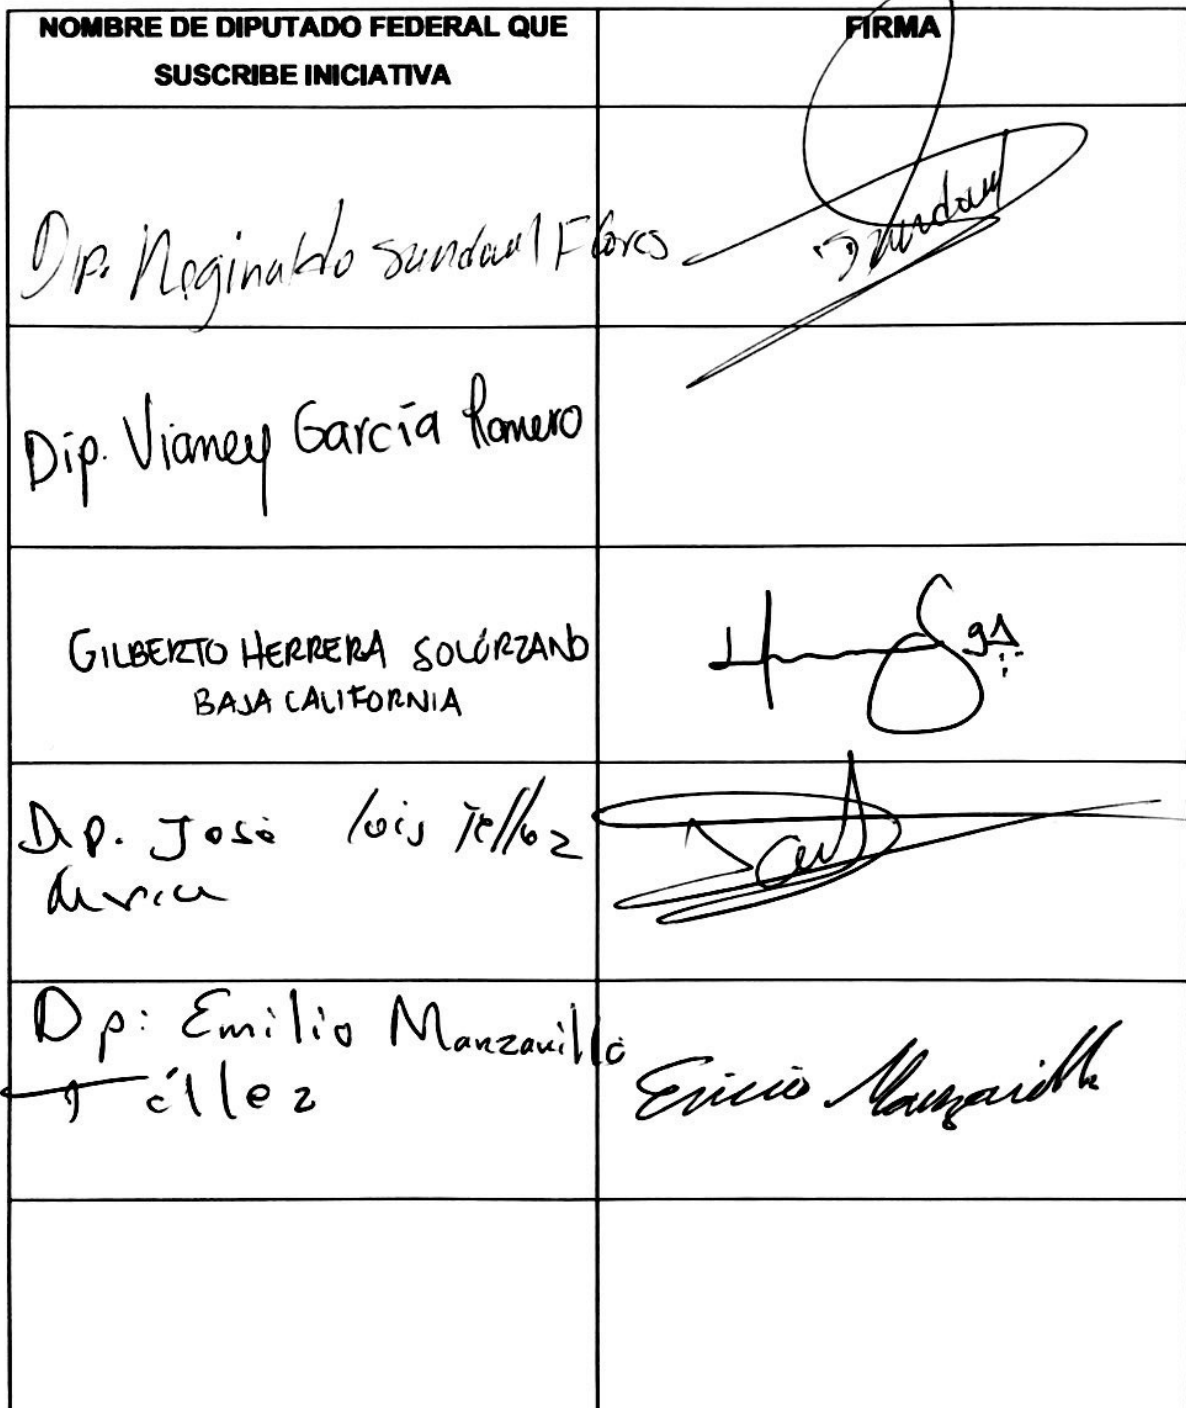 NOMBRE DE DIPUTADO FEDERAL QUE
SUSCRIBE INICIATIVA
FIRMA
Dip. Reginaldo Sandoval Flores
Sandoval
Dip. Vianey García Romero
GILBERTO HERRERA SOLÓRZANO
BAJA CALIFORNIA
Dip. José Luis Téllez
Dip: Emilio Manzanilla
Téllez
Emilio Manzanilla